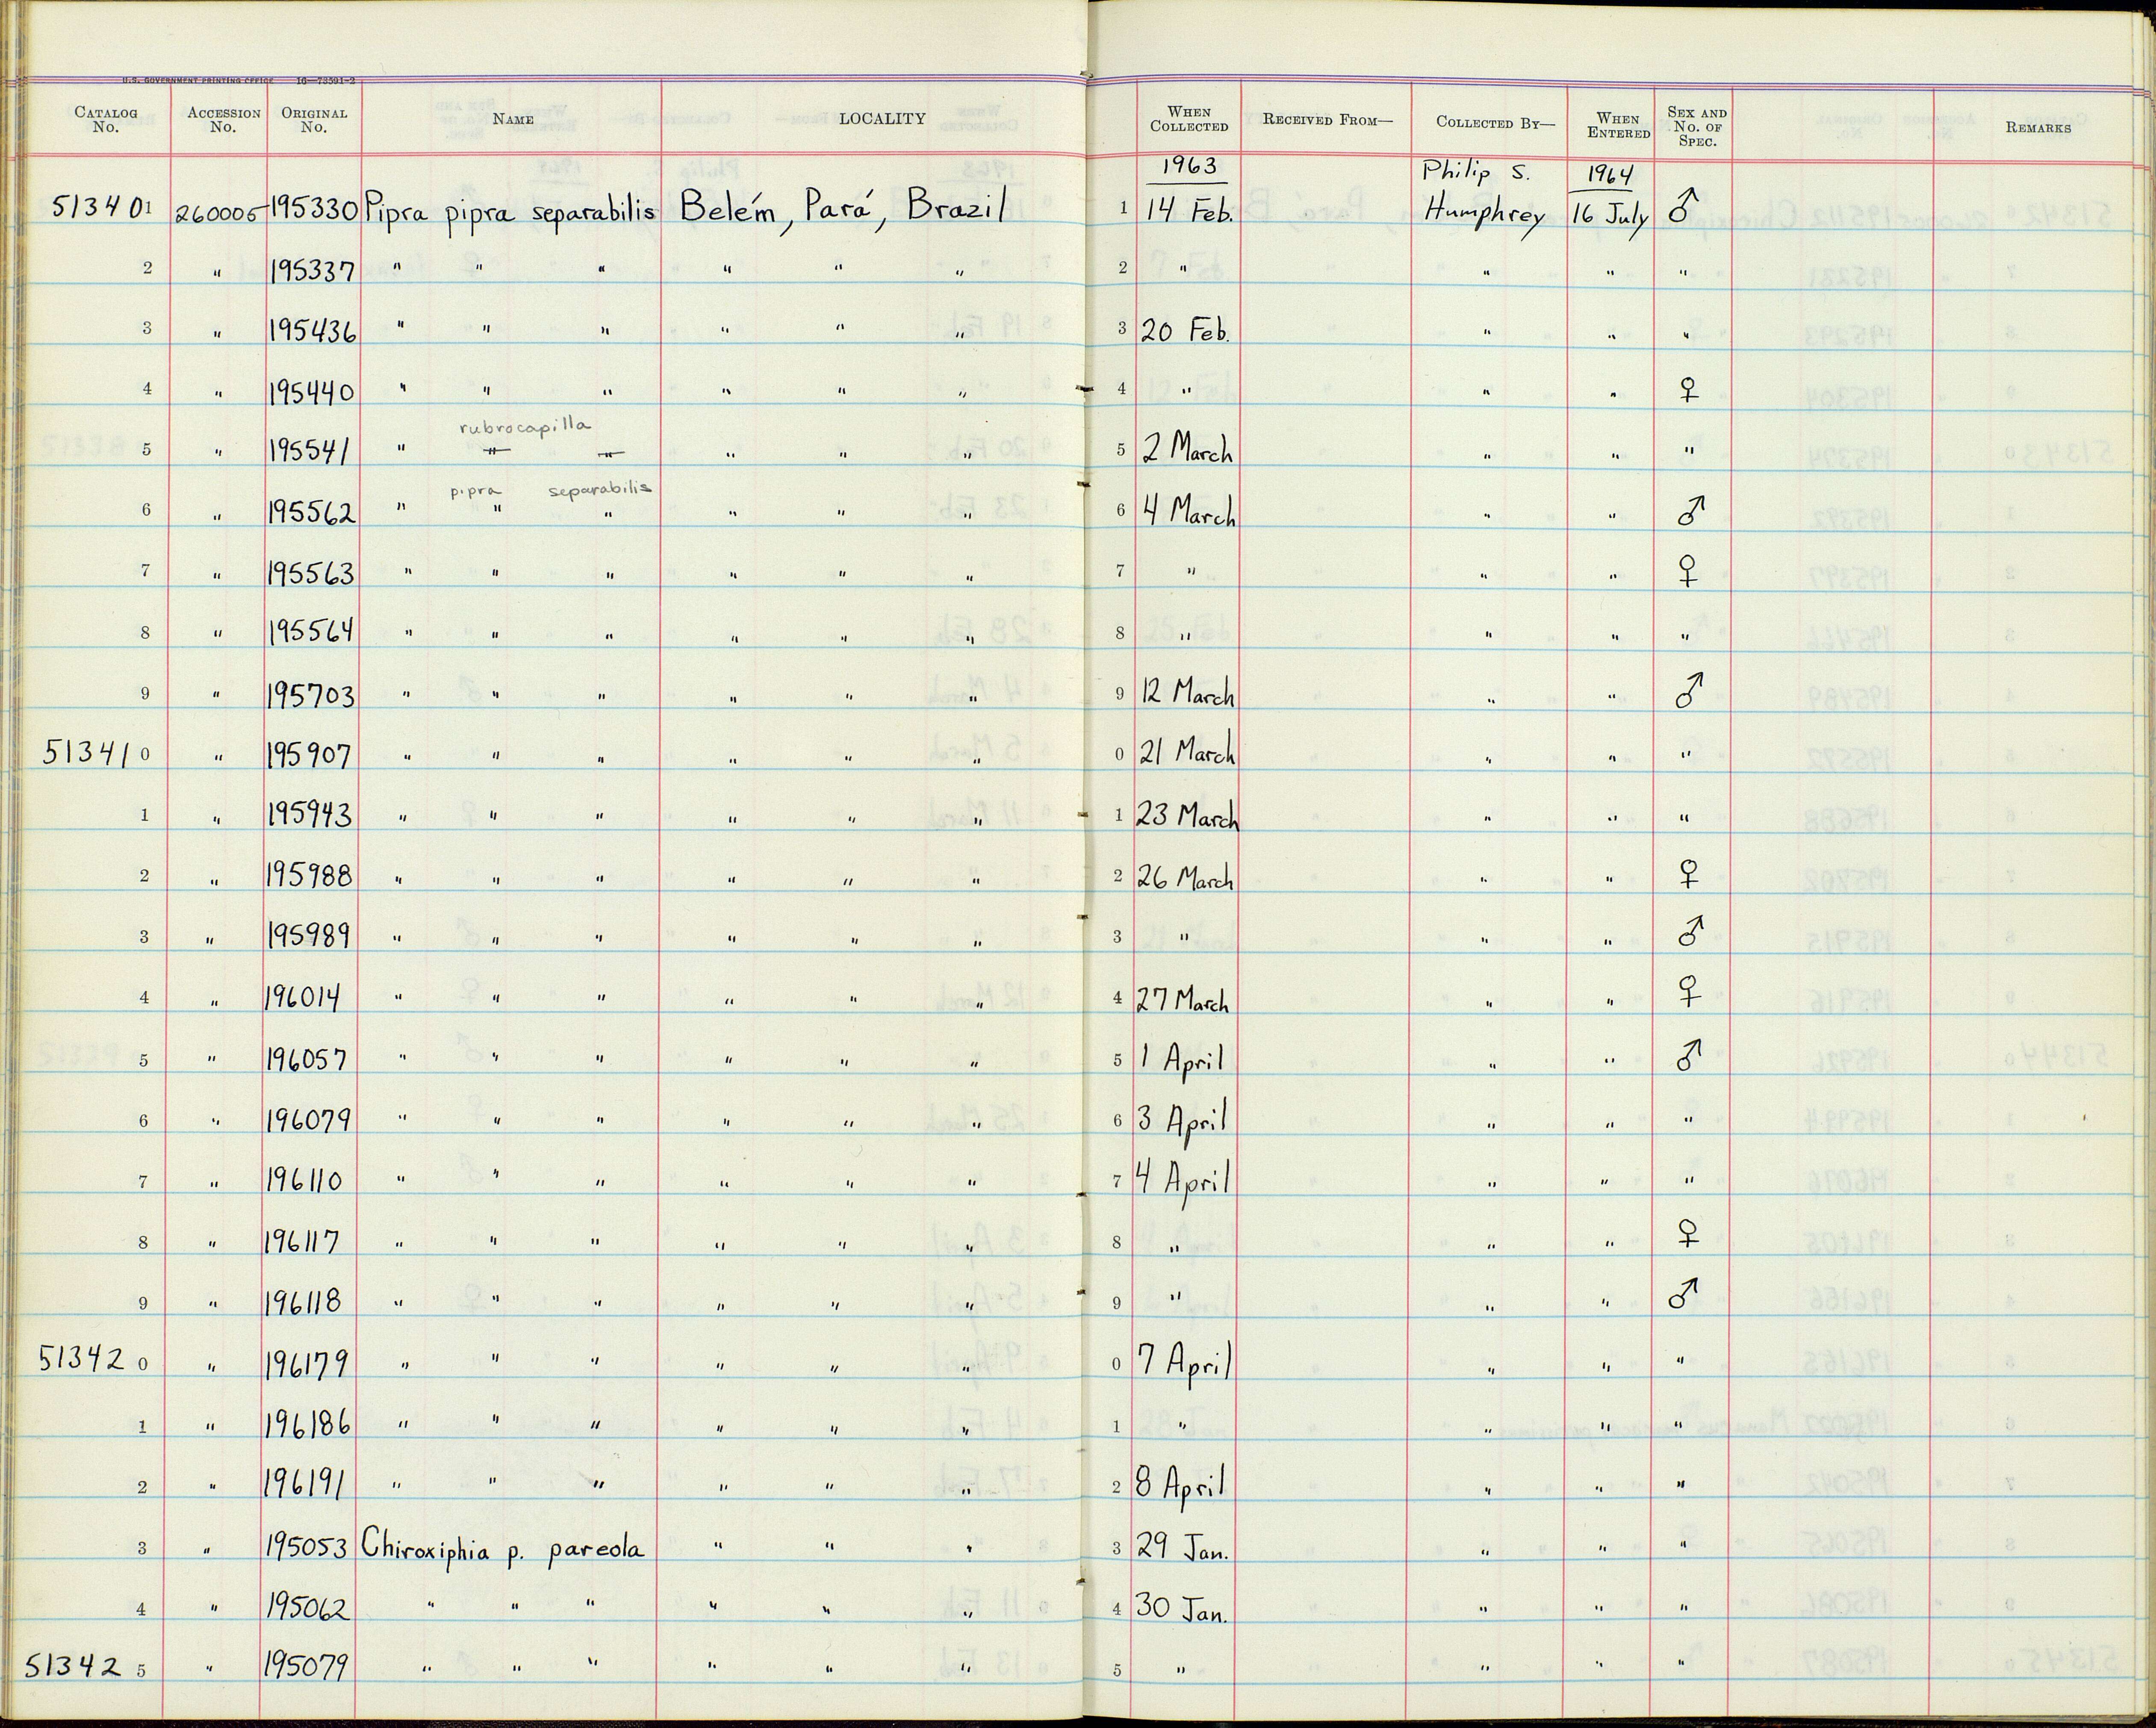 U.S. GOVERNMENT PRINTING OFFICE 16—73591-2
CATALOG No. ACCESSION No. ORIGINAL No. NAME LOCALITY WHEN COLLECTED RECEIVED FROM— COLLECTED BY— WHEN ENTERED SEX AND No. OF SPEC. REMARKS
1963 Philip S. 1964
513401 260005 195330 Pipra pipra separabilis Belém, Pará, Brazil 1 14 Feb. Humphrey 16 July ♂
2 " 195337 " " " " " " 2 " " " "
3 " 195436 " " " " " " 3 20 Feb. " " "
4 " 195440 " " " " " " 4 " " " ♀
rubrocapilla
5 " 195541 " " " " " " 5 2 March " " "
pipra separabilis
6 " 195562 " " " " " " 6 4 March " " ♂
7 " 195563 " " " " " " 7 " " " ♀
8 " 195564 " " " " " " 8 " " " "
9 " 195703 " " " " " " 9 12 March " " ♂
513410 " 195907 " " " " " " 0 21 March " " "
1 " 195943 " " " " " " 1 23 March " " "
2 " 195988 " " " " " " 2 26 March " " ♀
3 " 195989 " " " " " " 3 " " " ♂
4 " 196014 " " " " " " 4 27 March " " ♀
5 " 196057 " " " " " " 5 1 April " " ♂
6 " 196079 " " " " " " 6 3 April " " "
7 " 196110 " " " " " " 7 4 April " " "
8 " 196117 " " " " " " 8 " " " ♀
9 " 196118 " " " " " " 9 " " " ♂
513420 " 196179 " " " " " " 0 7 April " " "
1 " 196186 " " " " " " 1 " " " "
2 " 196191 " " " " " " 2 8 April " " "
3 " 195053 Chiroxiphia p. pareola " " " 3 29 Jan. " " "
4 " 195062 " " " " " " 4 30 Jan. " " "
513425 " 195079 " " " " " " 5 " " " "